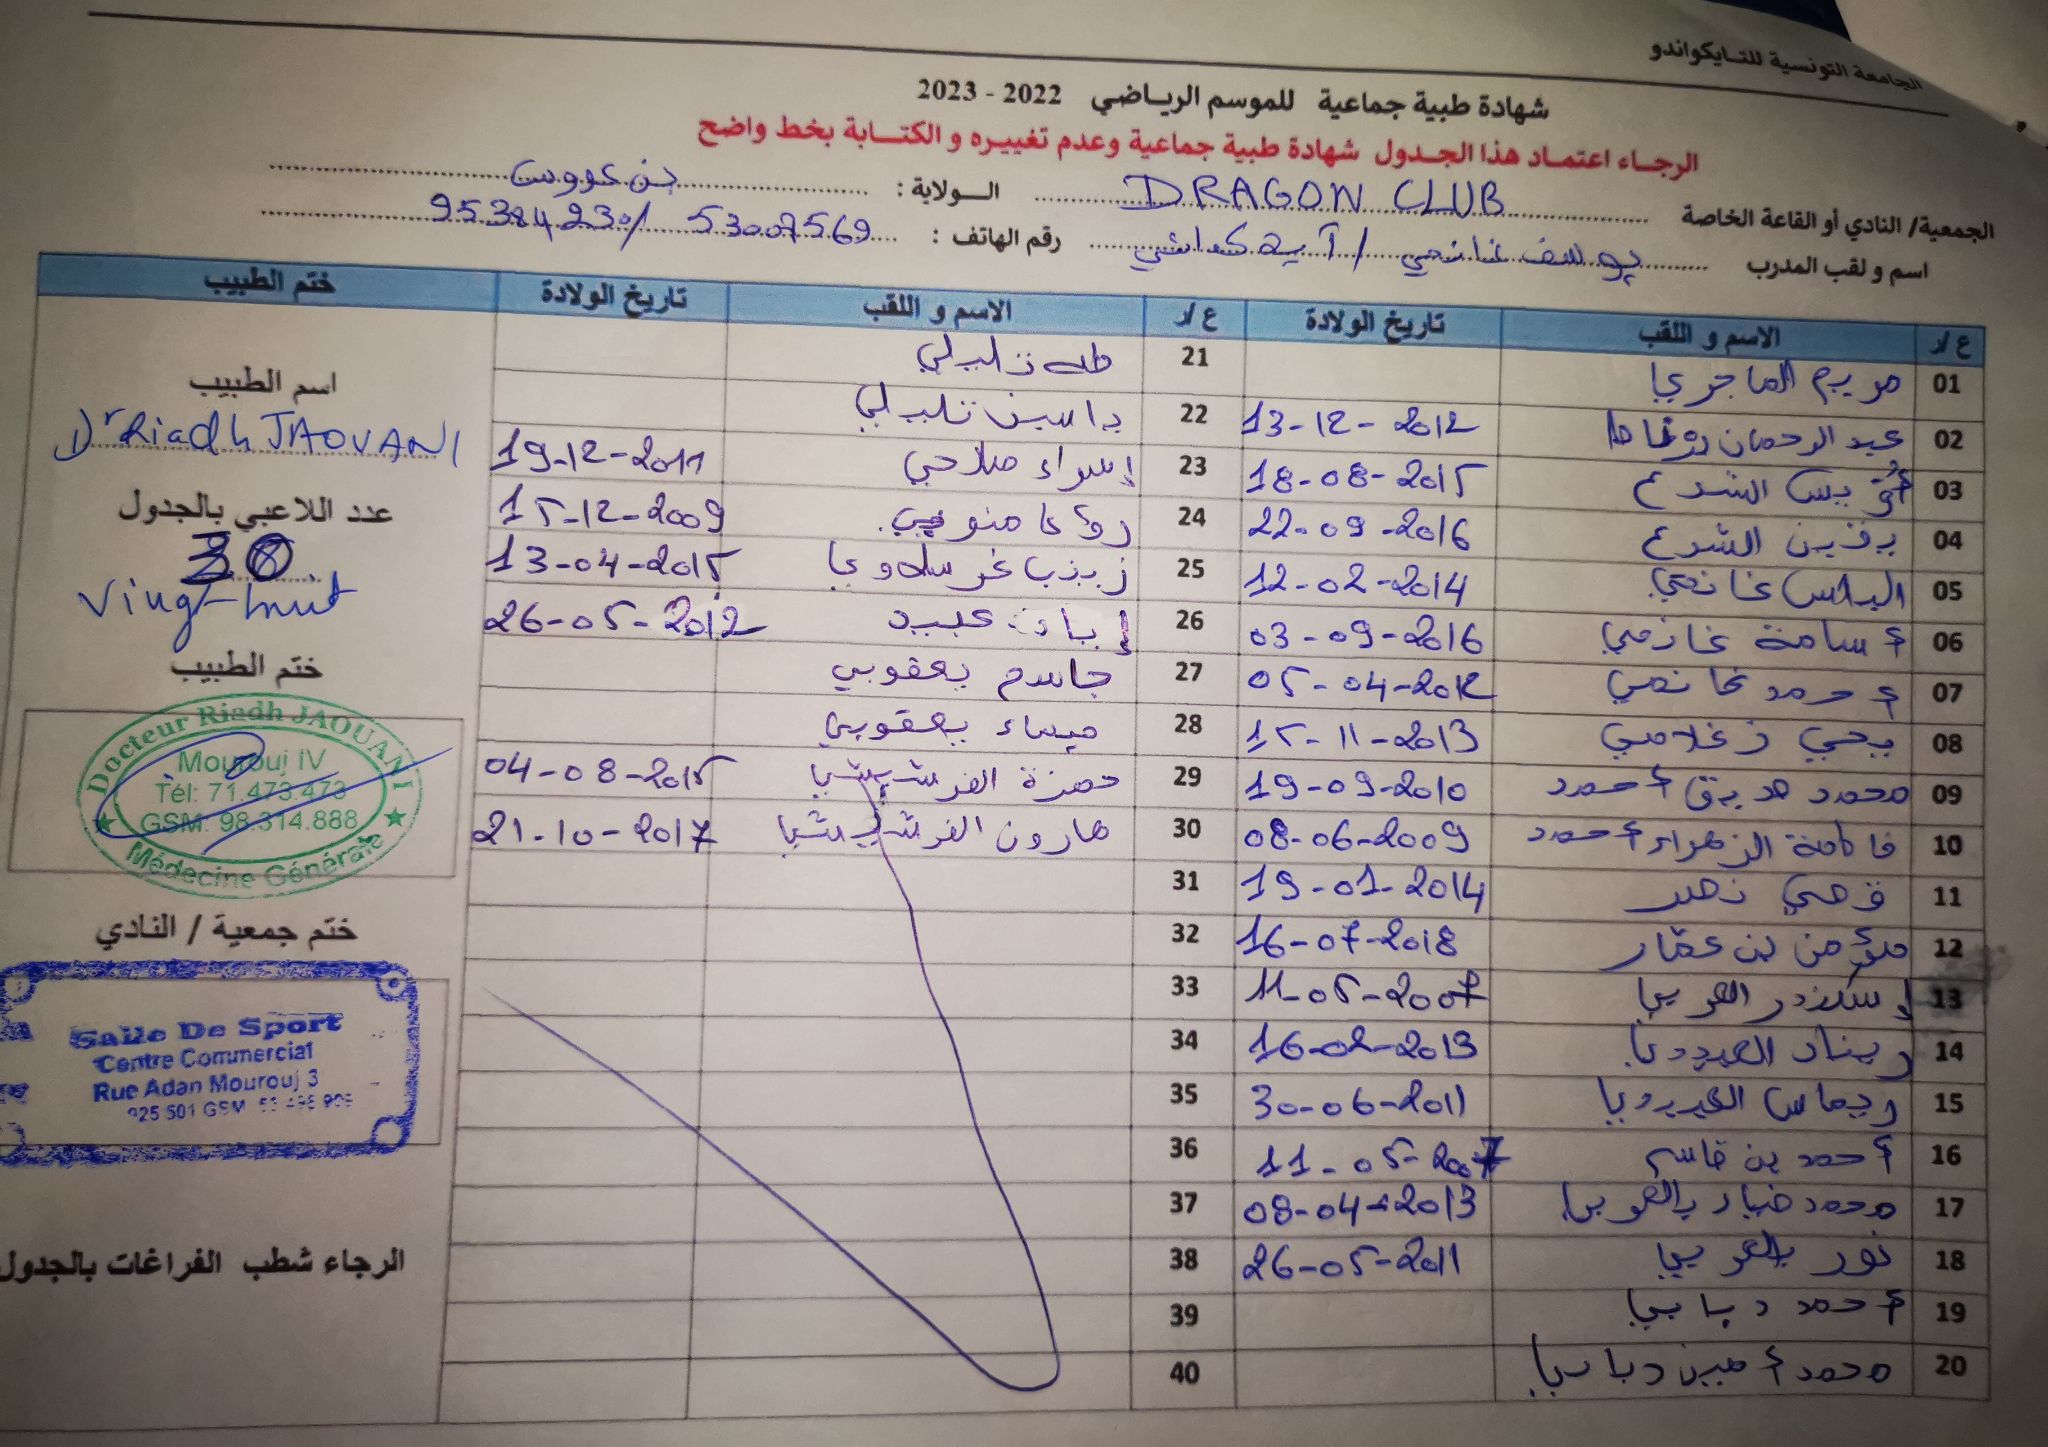 الجامعة التونسية للتايكواندو
شهادة طبية جماعية للموسم الرياضي 2022 - 2023
الرجاء اعتماد هذا الجدول شهادة طبية جماعية وعدم تغييره و الكتابة بخط واضح
الجمعية/ النادي أو القاعة الخاصة DRAGON CLUB الولاية : بن عروس
اسم و لقب المدرب يوسف غانمي / آية رقم الهاتف : 53007569 / 95384230
ع/ر الاسم و اللقب تاريخ الولادة ع/ر الاسم و اللقب تاريخ الولادة ختم الطبيب
01 مريم الماجري
02 عبد الرحمان 13-12-2012
03 الشرع 18-08-2015
04 الشرع 22-09-2016
05 الياس غانمي 12-02-2014
06 أسامة غانمي 03-09-2016
07 أحمد غانمي 05-04-2012
08 يحي زغلامي 15-11-2013
09 محمد أحمد 19-09-2010
10 فاطمة الزهراء أحمد 08-06-2009
11 نصر 19-01-2014
12 مؤمن بن عمار 16-07-2018
13 إسكندر 11-05-2007
14 ريناد 16-02-2013
15 ريماس 30-06-2011
16 أحمد بن قاسم 11-05-2007
17 محمد ضياء 08-04-2013
18 نور 26-05-2011
19 أحمد ديابي
20 محمد أمين ديابي
21 طه تليلي
22 ياسين تليلي
23 إسراء صلاحي 19-12-2011
24 15-12-2009
25 زينب غرسلاوي 13-04-2015
26 إياد عبيد 26-05-2012
27 جاسم يعقوبي
28 ميساء يعقوبي
29 حمزة الفرشيشي 04-08-2015
30 هارون الفرشيشي 21-10-2017
31
32
33
34
35
36
37
38
39
40
اسم الطبيب
Dr Riadh JAOUANI
عدد اللاعبي بالجدول
Vingt-huit
ختم الطبيب
Docteur Riadh JAOUANI
Mourouj IV
Tél: 71.473.473
GSM: 98.314.888
Médecine Générale
ختم جمعية / النادي
Salle De Sport
Centre Commercial
Rue Adan Mourouj 3
الرجاء شطب الفراغات بالجدول